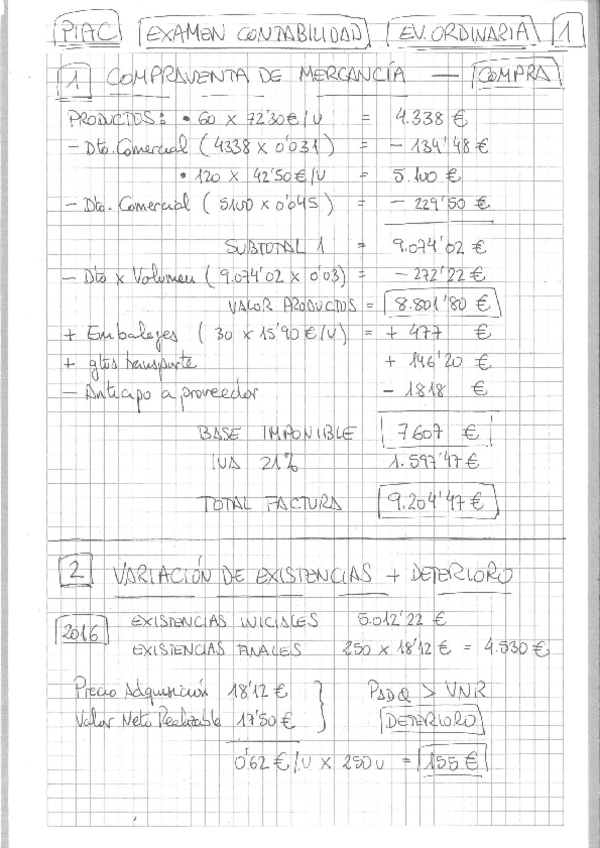 PIAC EXAMEN CONTABILIDAD EV. ORDINARIA 1
1 COMPRAVENTA DE MERCANCÍA — COMPRA
PRODUCTOS: • 60 x 72'30€/U = 4.338 €
- Dto. Comercial (4338 x 0'031) = - 134'48 €
• 120 x 42'50€/U = 5.100 €
- Dto. Comercial (5100 x 0'045) = - 229'50 €
SUBTOTAL 1 = 9.074'02 €
- Dto x Volumen (9.074'02 x 0'03) = - 272'22 €
VALOR PRODUCTOS = 8.801'80 €
+ Embalajes (30 x 15'90€/U) = + 477 €
+ gtos transporte + 146'20 €
- Anticipo a proveedor - 1.818 €
BASE IMPONIBLE 7607 €
IVA 21% 1.597'47 €
TOTAL FACTURA 9.204'47 €
2 VARIACIÓN DE EXISTENCIAS + DETERIORO
2016 EXISTENCIAS INICIALES 5.012'22 €
EXISTENCIAS FINALES 250 x 18'12 € = 4.530 €
Precio Adquisición 18'12 € PADQ > VNR
Valor Neto Realizable 17'50 € DETERIORO
0'62 €/U x 250 u = 155 €